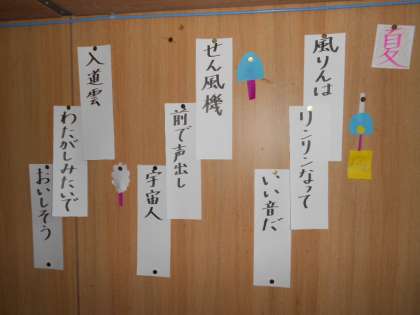 夏
風りんは
リンリンなって
いい音だ
せん風機
前で声出し
宇宙人
入道雲
わたがしみたいで
おいしそう